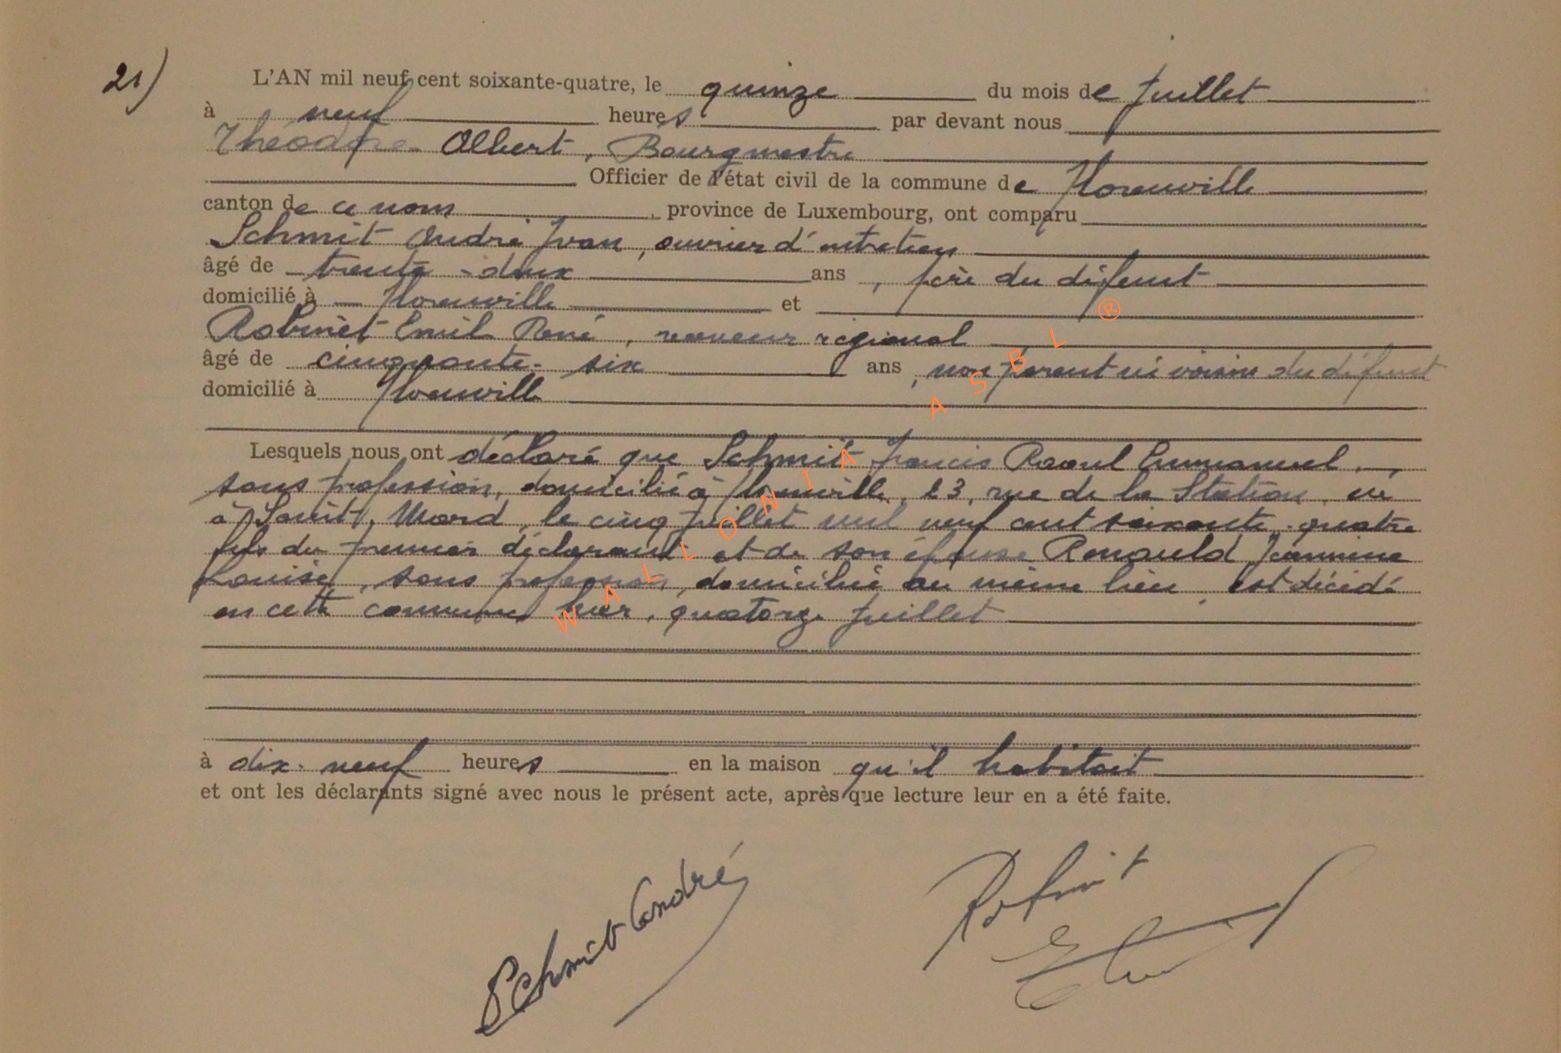 21)
L'AN mil neuf cent soixante-quatre, le quinze du mois de Juillet
à neuf heures par devant nous
Théodore Albert, Bourgmestre
Officier de l'état civil de la commune de Florenville
canton de ce nom, province de Luxembourg, ont comparu
Schmit André Ivan, ouvrier d'entretien
âgé de trente-deux ans, père du défunt
domicilié à Florenville et
Robinet Emil René, receveur régional
âgé de cinquante-six ans, non parent ni voisin du défunt
domicilié à Florenville
Lesquels nous ont déclaré que Schmit Francis Raoul Emmanuel,
sans profession, domicilié à Florenville, 23, rue de la Station, né
à Saint, Mard, le cinq juillet mil neuf cent soixante-quatre
fils du premier déclarant et de son épouse Renauld Jeannine
Louise, sans profession, domiciliée au même lieu, est décédé
en cette commune hier, quatorze juillet
à dix-neuf heures en la maison qu'il habitait
et ont les déclarants signé avec nous le présent acte, après que lecture leur en a été faite.
Schmit André
Robinet
WALLONIA ASBL ®